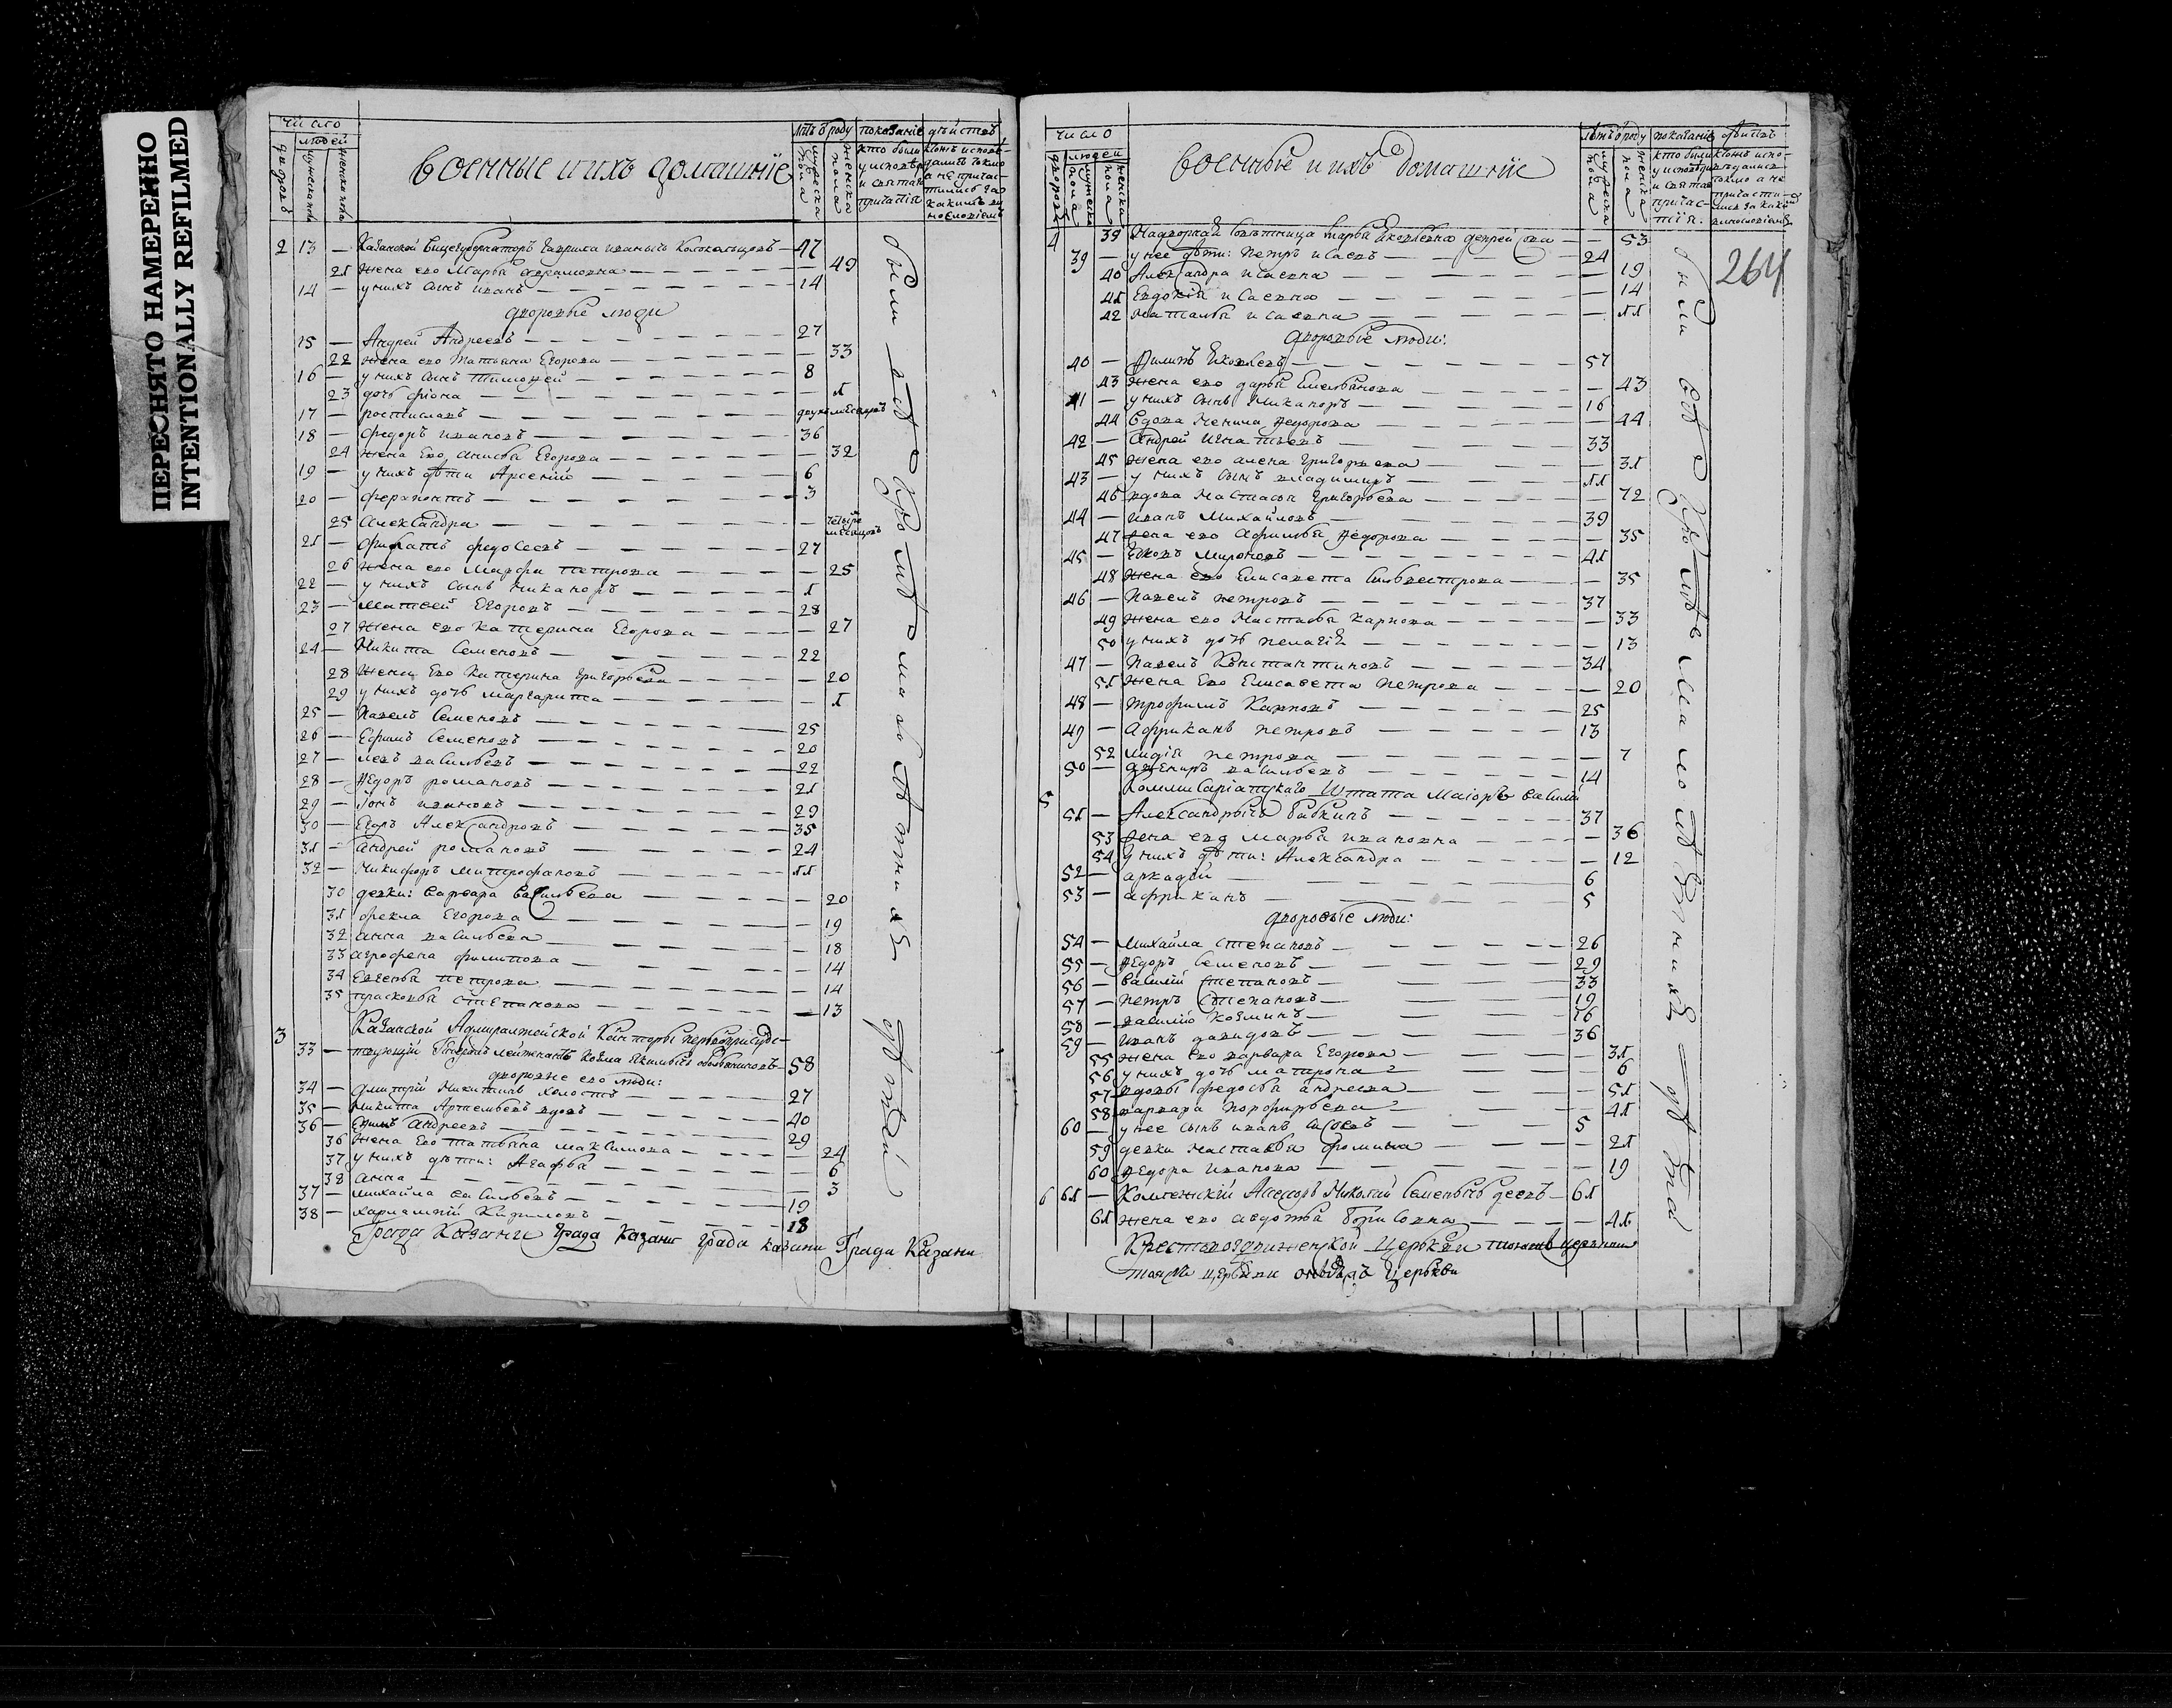 ПЕРЕСНЯТО НАМЕРЕННО
INTENTIONALLY REFILMED
число
людей
дворовъ
мужеска пола
женска пола
военные и ихъ домашніе
лѣтъ ѿ роду
мужеска пола
женска пола
показаніе дѣйствъ
кто были у исповѣди и святаго причастія
2 13 — Казанской Вицегубернаторъ Гаврила иванычь Колокольцовъ — 47
21 жена его Марѳа аврамовна — 49
14 — у нихъ сынъ иванъ — 14
дворовые люди
15 — Андрей Андреевъ — 27
22 жена его Татьяна Егорова — 33
16 — у нихъ сынъ тимоѳей — 8
23 дочь фіона — 1
17 — ростиславъ — двухъ месяцовъ
18 — федоръ ивановъ — 36
24 жена Его анисья Егорова — 32
19 — у нихъ дѣти Арсеній — 6
20 — ферапонтъ — 3
25 александра — четыре месяцовъ
21 — федосеевъ — 27
26 жена его Марфа петрова — 25
22 — у нихъ сынъ никаноръ — 1
23 — матвей Егоровъ — 28
27 жена его катерина Егорова — 27
24 — Никита Семеновъ — 22
28 жена Его Катерина григорьева — 20
29 у нихъ дочь маргарита — 1
25 — Павелъ Семеновъ — 25
26 — Ефимъ Семеновъ — 20
27 — левъ васильевъ — 22
28 — Ѳедоръ романовъ — 21
29 — ивановъ — 29
30 — Егоръ Александровъ — 35
31 — андрей романовъ — 24
32 — Никифоръ митрофановъ — 11
30 девки: варвара васильева — 20
31 фекла Егорова — 19
32 анна васильева — 18
33 агрофена филипова — 14
34 Евгенья петрова — 14
35 прасковья степанова — 13
3 Казанской Адмиралтейской Канторы первоприсудс-
33 — твующій Генералъ лейтенантъ Козма — 58
дворовые его люди:
34 — дмитрій Никитинъ холостъ — 27
35 — никита Артемьевъ вдовъ — 40
36 — андреевъ — 29
36 жена Его татьяна максимова — 24
37 у нихъ дѣти: Агафья — 6
38 анна — 3
37 — михайла васильевъ — 19
38 — харлампій Кириловъ — 18
Града Казани Града Казани града казани Града Казани
число
людей
дворовъ
мужеска пола
женска пола
военные и ихъ домашніе
лѣтъ ѿ роду
мужеска пола
женска пола
показаніе дѣйствъ
кто были у исповѣди и святаго причастія.
264
4 39 Надворная совѣтница марѳа Яковлевна — 53
39 — у нее дѣти: Петръ исаевъ — 24
40 Александра исаевна — 19
41 Евдокія исаевна — 14
42 наталья исаевна — 11
дворовые люди:
40 — Филипъ Яковлевъ — 57
43 жена его дарья Емельянова — 43
41 — у нихъ сынъ Никаноръ — 16
44 вдова Ѳедорова — 44
42 — андрей Игнатьевъ — 33
45 жена его алена григорьева — 31
43 — у нихъ сынъ владимиръ — 11
46 вдова Настасья григорьева — 72
44 — иванъ михайловъ — 39
47 жена его Ѳедорова — 35
45 — Яковъ мироновъ — 41
48 жена его Елисавета Сильвестрова — 35
46 — Павелъ петровъ — 37
49 жена его Настасья карпова — 33
50 у нихъ дочь пелагія — 13
47 — Павелъ Константиновъ — 34
51 жена Его Елисавета петрова — 20
48 — трофимъ Карповъ — 25
49 — африканъ петровъ — 13
52 лидія петрова — 7
50 — васильевъ — 14
5 Коммисаріатскаго Штата Маіоръ василій
51 — Александрычь Бабкинъ — 37
53 жена его марья ивановна — 36
54 у нихъ дѣти: Александра — 12
52 — аркадій — 6
53 — африканъ — 5
дворовые люди:
54 — михайла степановъ — 26
55 — Ѳедоръ Семеновъ — 29
56 — василій степановъ — 33
57 — петръ Степановъ — 19
58 — василій козминъ — 16
59 — иванъ давидовъ — 36
55 жена его варвара Егорова — 31
56 у нихъ дочь матрона — 6
57 вдовы федосья андреева — 51
58 варвара порфирьева — 41
60 — у нее сынъ иванъ — 5
59 девки настасья фомина — 21
60 Ѳедора иванова — 19
6 61 — Колежскій Ассесоръ Николай Семенычь — 61
61 жена его авдотья борисовна — 41
Крестовоздвиженской Церькви